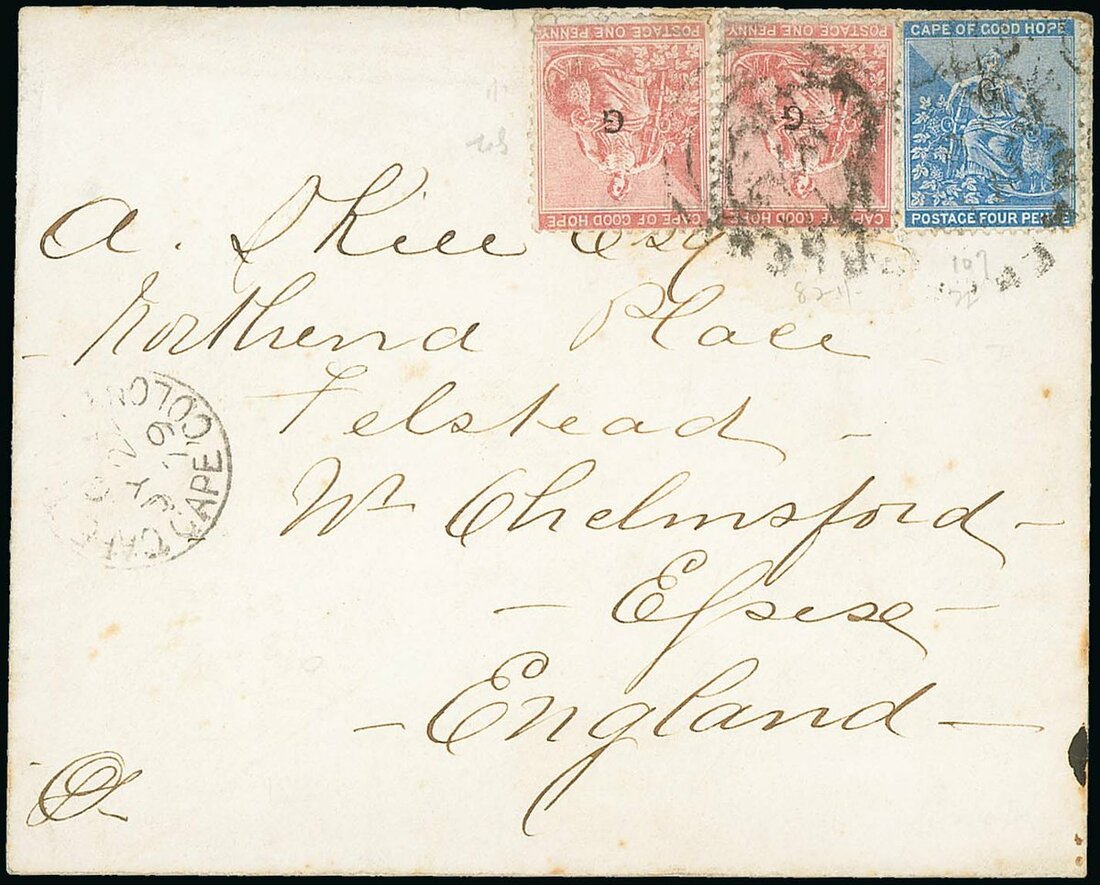 POSTAGE ONE PENNY
G
CAPE OF GOOD HOPE
POSTAGE ONE PENNY
G
CAPE OF GOOD HOPE
CAPE OF GOOD HOPE
G
POSTAGE FOUR PENCE
A. Skill Esq
Northend Place
Felstead
Nr Chelmsford
Essex
England
107
CAPE COLO